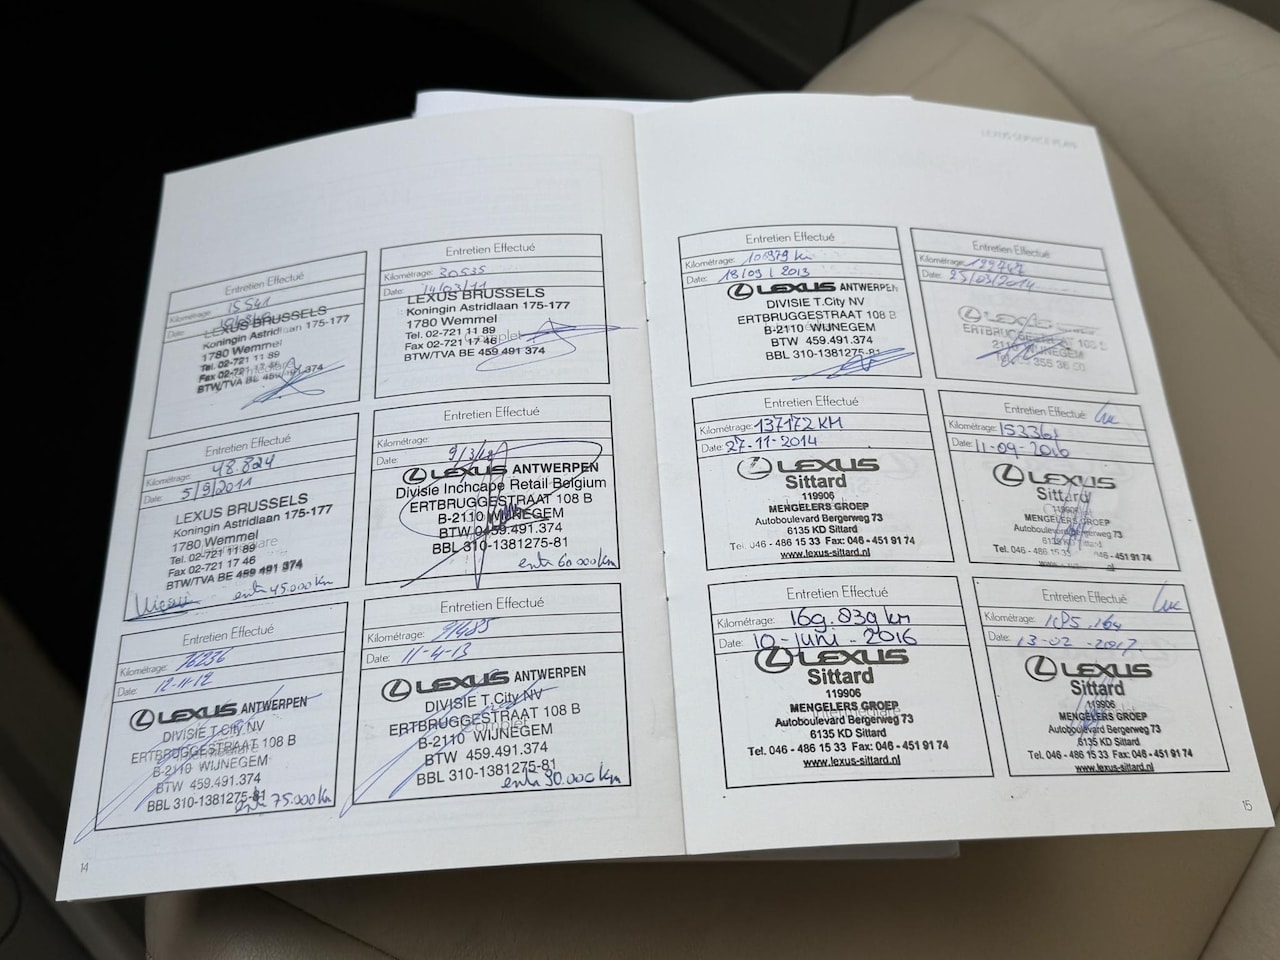 Entretien Effectué
Kilométrage: 15541
Date:
LEXUS BRUSSELS
Koningin Astridlaan 175-177
1780 Wemmel
Tel. 02-721 11 89
Fax 02-721 17 46
BTW/TVA BE 459.491.374
Entretien Effectué
Kilométrage: 30535
Date: 14/03/11
LEXUS BRUSSELS
Koningin Astridlaan 175-177
1780 Wemmel
Tel. 02-721 11 89
Fax 02-721 17 46
BTW/TVA BE 459.491.374
Entretien Effectué
Kilométrage: 48.824
Date: 5/9/2011
LEXUS BRUSSELS
Koningin Astridlaan 175-177
1780 Wemmel
Tel. 02-721 11 89
Fax 02-721 17 46
BTW/TVA BE 459 491 374
45.000 km
Entretien Effectué
Kilométrage:
Date: 9/3/12
LEXUS ANTWERPEN
Divisie Inchcape Retail Belgium
ERTBRUGGESTRAAT 108 B
B-2110 WIJNEGEM
BTW 0459.491.374
BBL 310-1381275-81
60.000 km
Entretien Effectué
Kilométrage: 76236
Date: 12-11-12
LEXUS ANTWERPEN
DIVISIE T.City NV
ERTBRUGGESTRAAT 108 B
B-2110 WIJNEGEM
BTW 459.491.374
BBL 310-1381275-81
75.000 km
Entretien Effectué
Kilométrage: 91485
Date: 11-4-13
LEXUS ANTWERPEN
DIVISIE T.City NV
ERTBRUGGESTRAAT 108 B
B-2110 WIJNEGEM
BTW 459.491.374
BBL 310-1381275-81
14
LEXUS SERVICE PLAN
Entretien Effectué
Kilométrage: 106979 km
Date: 18/09/2013
LEXUS ANTWERPEN
DIVISIE T.City NV
ERTBRUGGESTRAAT 108 B
B-2110 WIJNEGEM
BTW 459.491.374
BBL 310-1381275-81
Entretien Effectué
Kilométrage:
Date: 25/03/2014
LEXUS
ERTBRUGGESTRAAT 108 B
2110 WIJNEGEM
Entretien Effectué
Kilométrage: 137172 KM
Date: 27-11-2014
LEXUS
Sittard
119906
MENGELERS GROEP
Autoboulevard Bergerweg 73
6135 KD Sittard
Tel. 046 - 486 15 33 Fax: 046 - 451 91 74
www.lexus-sittard.nl
Entretien Effectué
Kilométrage:
Date: 11-09-2016
LEXUS
Sittard
119906
MENGELERS GROEP
Autoboulevard Bergerweg 73
6135 KD Sittard
Tel. 046 - 486 15 33 046 - 451 91 74
Entretien Effectué
Kilométrage: 169.839 km
Date: 10-Juni-2016
LEXUS
Sittard
119906
MENGELERS GROEP
Autoboulevard Bergerweg 73
6135 KD Sittard
Tel. 046 - 486 15 33 Fax: 046 - 451 91 74
www.lexus-sittard.nl
Entretien Effectué
Kilométrage: 185.164
Date: 13-02-2017.
LEXUS
Sittard
119906
MENGELERS GROEP
Autoboulevard Bergerweg 73
6135 KD Sittard
Tel. 046 - 486 15 33 Fax: 046 - 451 91 74
www.lexus-sittard.nl
15